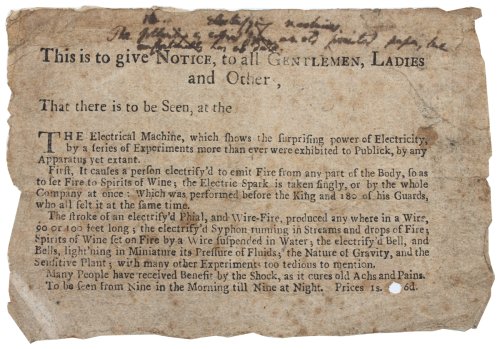 electrifying machine,
The following is copied from an old printed paper, the
This is to give NOTICE, to all GENTLEMEN, LADIES
and Other,
That there is to be Seen, at the
THE Electrical Machine, which shows the surprising power of Electricity,
by a series of Experiments more than ever were exhibited to Publick, by any
Apparatus yet extant.
First, It causes a person electrify'd to emit Fire from any part of the Body, so as
to set Fire to Spirits of Wine; the Electric Spark is taken singly, or by the whole
Company at once: Which was performed before the King and 180 of his Guards,
who all felt it at the same time.
The stroke of an electrify'd Phial, and Wire-Fire, produced any where in a Wire,
90 or 100 feet long; the electrify'd Syphon running in Streams and drops of Fire;
Spirits of Wine set on Fire by a Wire suspended in Water; the electrify'd Bell, and
Bells, light'ning in Miniature its Pressure of Fluids; the Nature of Gravity, and the
Sensitive Plant; with many other Experiment too tedious to mention.
Many People have received Benefit by the Shock, as it cures old Achs and Pains.
To be seen from Nine in the Morning till Nine at Night. Prices 1s. 6d.